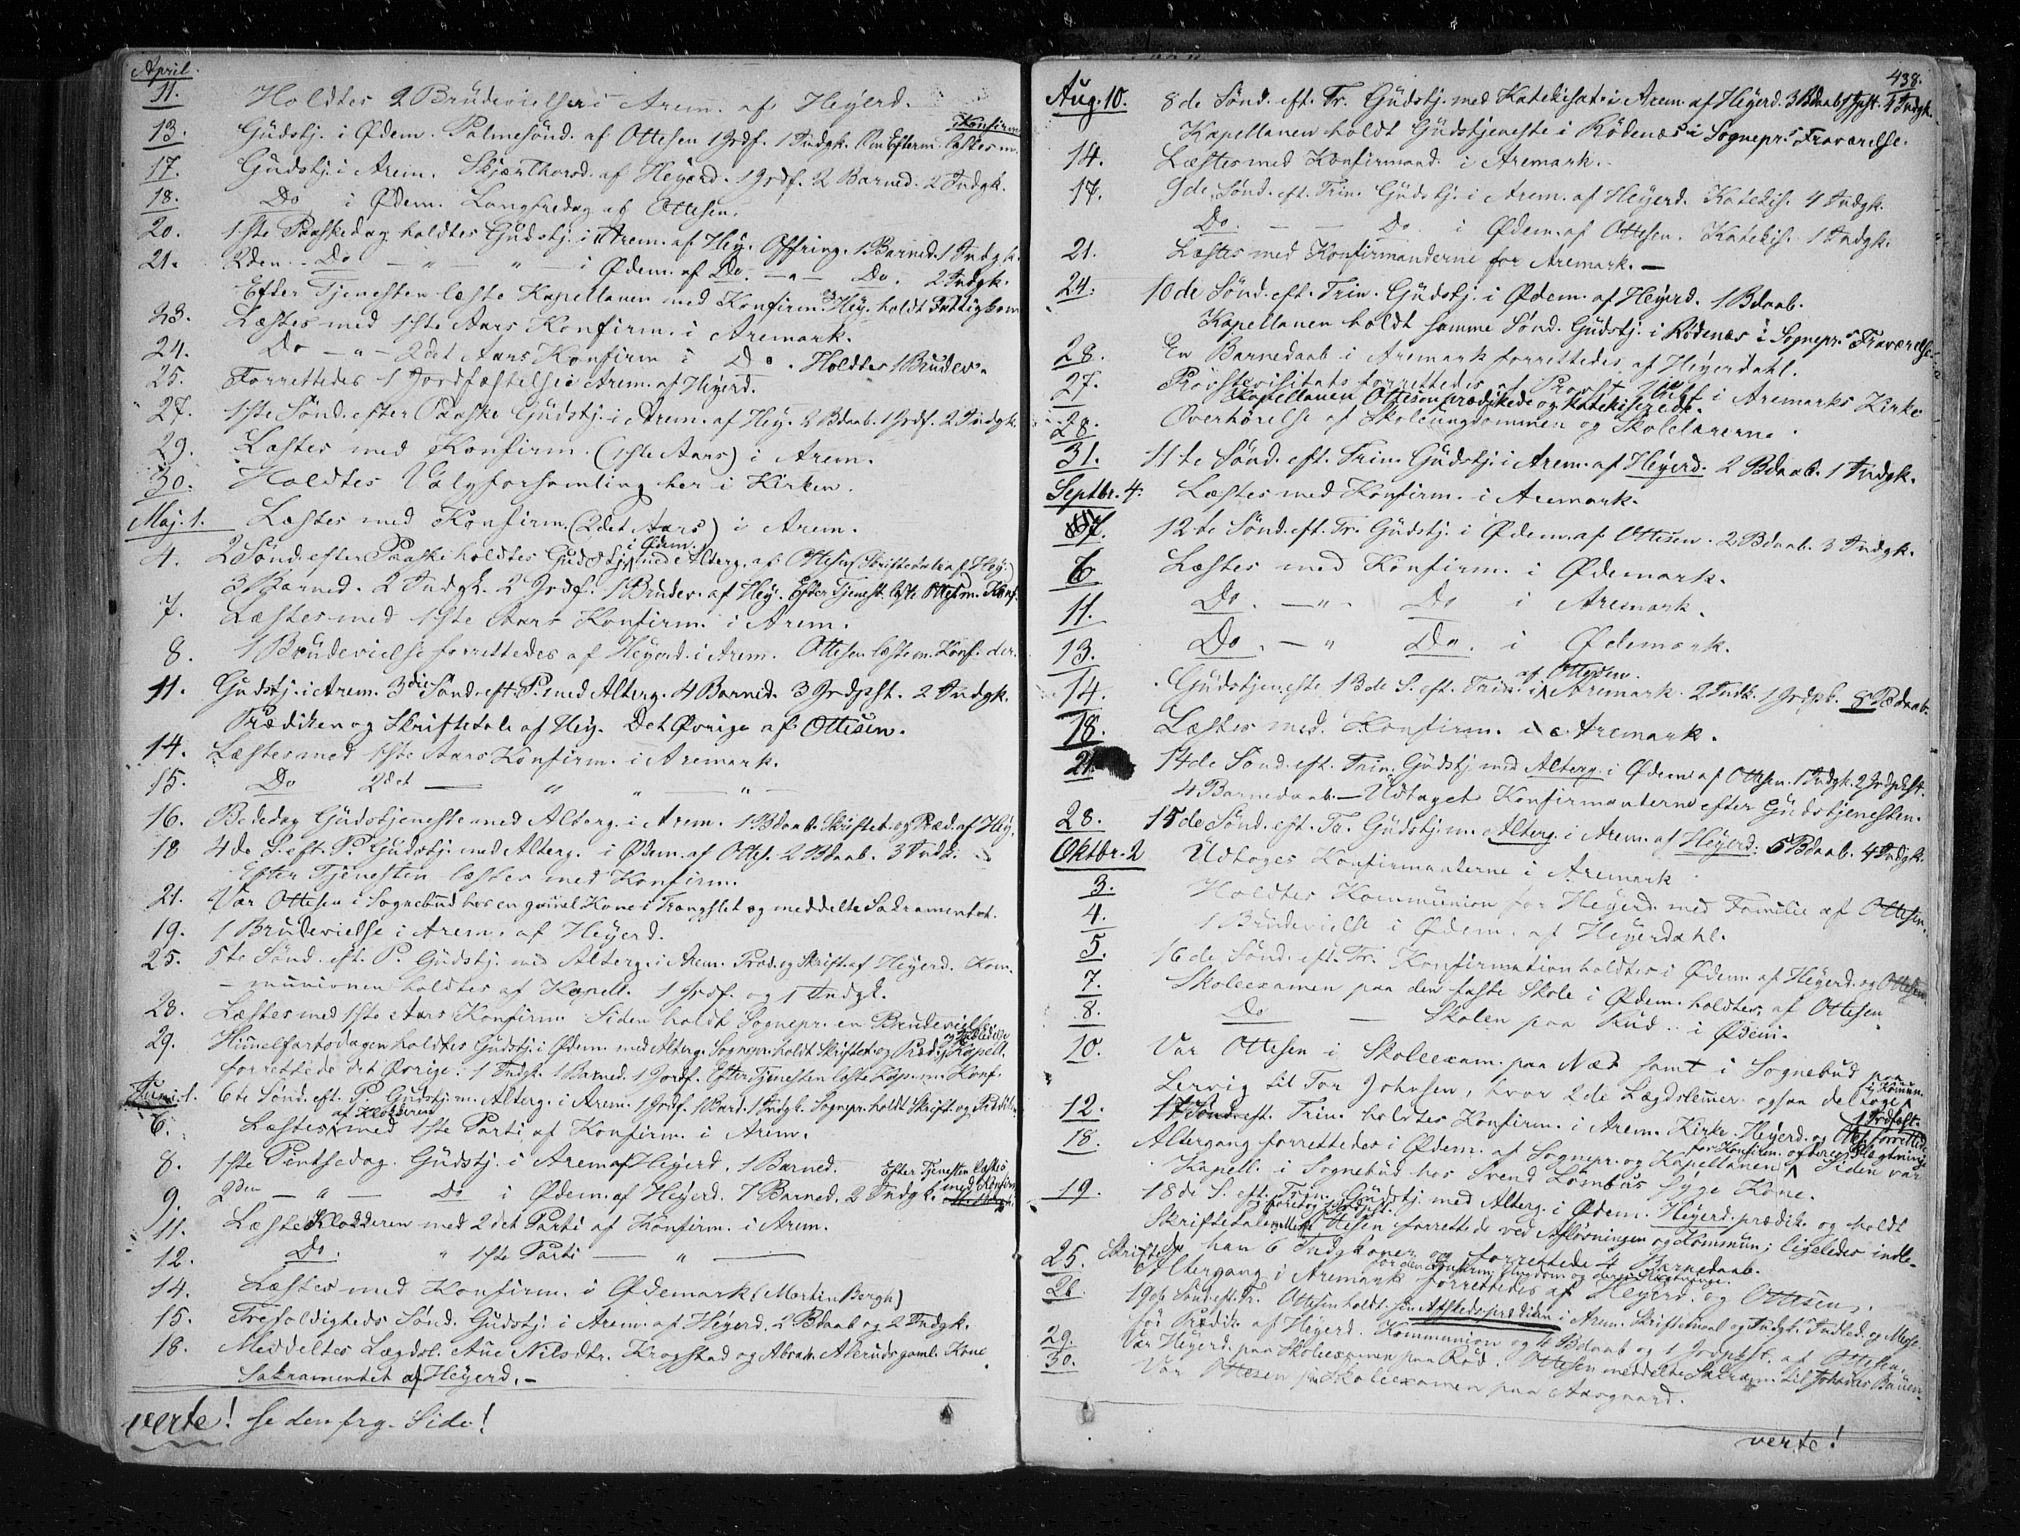 April.
11. Holdtes 2 Brüdevielser i Arem. af Heyerd.
13. Güdstj. i Ødem. Palmesønd. af Ottesen 1 Jrdf. 1 Indgk. Om Efterm. læstes m. Konfirm.
17. Güdstj. i Arem. Skjærthorsd. af Heyerd. 1 Jrdf. 2 Barned. 2 Indgk.
18. Do i Ødem. Langfredag af Ottesen.
20. 1ste Paaskedag holdtes Güdstj. i Arem. af Hey. Offring. 1 Barned. 1 Indgk.
21. 2den Do — " — " — i Ødem. af Do. — " — Do. 2 Indgk.
Efter Tjenesten læste Kapellanen med Konfirm. og Hey. holdt Fattigkom
23. Læstes med 1ste Aars Konfirm. i Aremark.
24. Do — " — 2det Aars Konfirm i Do. Holdtes 1 Brudev.
25. Forrettedes 1 Jordfæstelse i Arem. af Heyerd.
27. 1ste Sønd. efter Paaske Güdstj. i Arem. af Hey. 2 Bdaab. 1 Jrdf. 2 Indgk.
29. Læstes med Konfirm. (1ste Aars) i Arem.
30. Holdtes Valgforsamling her i Kirken.
Maj. 1. Læstes med Konfirm. (2det Aars) i Arem.
4. 2 Sønd. efter Paaske holdtes Gudstj. i Ødem. med Alterg. af Ottesen (Skriftetale af Hey.)
3 Barned. 2 Indgk. 2 Jrdf. 1 Brüdev. af Hey. Efter Tjenest. læste Ottes. m. Konf.
7. Læstes med 1ste Aars Konfirm. i Arem.
8. 1 Brüdevielse forrettedes af Heyerd. i Arem. Ottesen læste m. Konf. der.
11. Gudstj. i Arem. 3die Sønd. eft. P. med Alterg. 4 Barned. 3 Jrdfst. 2 Indgk.
Prædiken og Skriftetale af Hey. Det Øvrige af Ottesen.
14. Læstes med 1ste Aars Konfirm. i Aremark.
15. Do 2det — " " — " —
16. Bededag Güdstjeneste med Alterg. i Arem. 1 Bdaab. Skriftet. og Præd. af Hey.
18 4de S. eft. P. Güdstj. med Alterg. i Ødem. af Ottes. 2 Bdaab. 3 Indk.
Efter Tjenesten læstes med Konfirm.
21. Var Ottesen i Sognebud hos en gamel Kone i Trangslet og meddelte Sakramentet.
19. 1 Brüdevielse i Arem. af Heyerd.
25. 5te Sønd. eft. P. Güdstj. med Alterg. i Arem. Præd. og Skrift. af Heyerd. Kom-
munionen holdtes af Kapell. 1 Jrdf. og 1 Indgk.
28. Læstes med 1ste Aars Konfirm. Siden holdt Sognepr. en Brudevielse
29. Himmelfartsdagen holdtes Güdstj. i Ødem. med Alterg. Sognepr. holdt Skriftet. og Prædik. Kapell.
forrettede det Øvrige. 1 Indgk. 1 Barned. 1 Jordf. Efter Tjenesten læste Kap. m. Konf.
Juni. 1. 6te Sønd. eft. P. Gudstj. m. Alterg. i Arem. 1 Jrdf. 1 Barned. 1 Indgk. Sognepr. holdt Skrift. og Prædik.
6. Læstes af Klokkeren med 1ste Parti af Konfirm. i Arem.
8. 1ste Pintsedag. Güdstj. i Arem. af Heyerd. 1 Barned.
9. 2den — " — Do i Ødem. af Heyerd. 7 Barned. 2 Indgk. Efter Tjenesten læstes med Konfirm
11. Læste Klokkeren med 2det Parti af Konfirm. i Arem.
12. Do. " 1ste Parti — " —
14. Læstes med Konfirm. i Ødemark (Martin Bergh)
15. Trefoldigheds Sønd. Güdstj. i Arem. af Heyerd. 2 Bdaab og 2 Indgk.
18. Meddeltes Lægdsl. Ane Nilsdtr. Krogstad og Abrah. Akerüds gaml. Kone
Sakramentet af Heyerd.
verte! se den frg. Side!
438.
Aug. 10. 8de Sønd. eft. Tr. Güdstj. med Katekisat. i Arem. af Heyerd. 3 Bdaab 1 Jrdfst. 4 Indgk.
Kapellanen holdt Güdstjeneste i Rödenæs i Sognepr.s Fraværelse.
14. Læstes med Konfirmand. i Aremark.
17. 9de Sønd. eft. Trin. Güdstj. i Arem. af Heyerd. Katekis. 4 Indgk.
Do. — — Do. i Ødem. af Ottesen. Katekis. 1 Indgk.
21. Læstes med Konfirmanderne for Aremark.
24. 10de Sønd. eft. Trin. Güdstj. i Ødem. af Heyerd. 1 Bdaab.
Kapellanen holdt samme Sønd. Güdstj. i Rödenæs i Sognepr.s Fraværelse
28. En Barnedaab i Aremark forrettedes af Heyerdahl.
27. Provstevisitats forrettedes af Provst i Aremarks Kirke
Kapellanen Ottesen prædikede og katekiserede.
28. Overhørelse af Skoleungdommen og Skolelærerne.
31. 11te Sønd. eft. Trin. Güdstj. i Arem. af Heyerd. 2 Bdaab. 1 Indgk.
Septbr. 4. Læstes med Konfirm. i Aremark.
7. 12te Sønd. eft. Tr. Güdstj. i Ødem. af Ottesen. 2 Bdaab. 3 Indgk.
6 Læstes med Konfirm. i Ødemark.
11. Do. — " — Do i Aremark.
13. Do. — " Do. i Ødemark.
14. Güdstjeneste 13de S. eft. Trin. i Aremark af Ottesen. 2 Indk. 1 Jrdpk. 8 Bdaab.
18. Læstes med Konfirm. i Aremark.
21. 14de Sønd. eft. Trin. Güdstj. med Alterg. i Ødem. af Ottesen. 1 Indgk. 2 Jrdpkst.
4 Barnedaab. — Udtaget Konfirmanterne efter Güdstjenesten.
28. 15de Sønd. eft. Tr. Güdstj. m. Alterg. i Arem. af Heyerd. 5 Bdaab. 4 Indgk.
Oktbr. 2 Udtoges Konfirmanterne i Aremark
3. Holdtes Kommunion for Heyerd. med Familie af Ottesen.
4. 1 Brüdevielse i Ødem. af Heyerdahl.
5. 16de Sønd. eft. Tr. Konfirmation holdtes i Ødem. af Heyerd. og Ottesen
7. Skoleexamen paa den faste Skole i Ødem. holdtes af Ottesen
8. Do — Skolen paa Rud i Ødem.
10. Var Ottesen i Skoleexam. paa Næs samt i Sognebud paa
Lervig til Tor Johnsen, hvor 2de Lægdslemer ogsaa deltoge i Komun.
12. 17 Sønd. eft. Trin. holdtes Konfirm. i Arem. Kirke. Heyerd. og Ottes. forrettede. 1 Jrdfst.
18. Altergang forrettedes i Ødem. af Sognepr. og Kapellanen for Konfirm. og deres Slægtninge Siden var
Kapell. i Sognebud hos Svend Lombus syge Kone.
19. 18de S. eft. Trin. Güdstj. med Alterg. i Ødem. Heyerd. prædik. og holdt
Skriftetale Ottesen forrettede ved Afløsningen og Kommun; ligeledes indle-
dede han 6 Indgkoner og forrettede 4 Barnedaab.
25. Altergang i Aremark for den konfirm. Ungdom og deres Slægtninge forrettedes af Heyerd. og Ottesen.
26. 19de Sønd. eft. Tr. Ottesen holdt sin Afskedsprædiken i Arem. Skriftemaal og Indgk. Indled. og Messe
før Prædik af Heyerd. Kommunion og 4 Bdaab og 1 Jrdpkst. af Ottesen.
29. Var Heyerd. paa Skoleexamen paa Röd. Ottesen meddelte Sakram. til Johanes Buüen
30. Var Ottesen paa Skoleexamen paa Aasgaard.
verte!